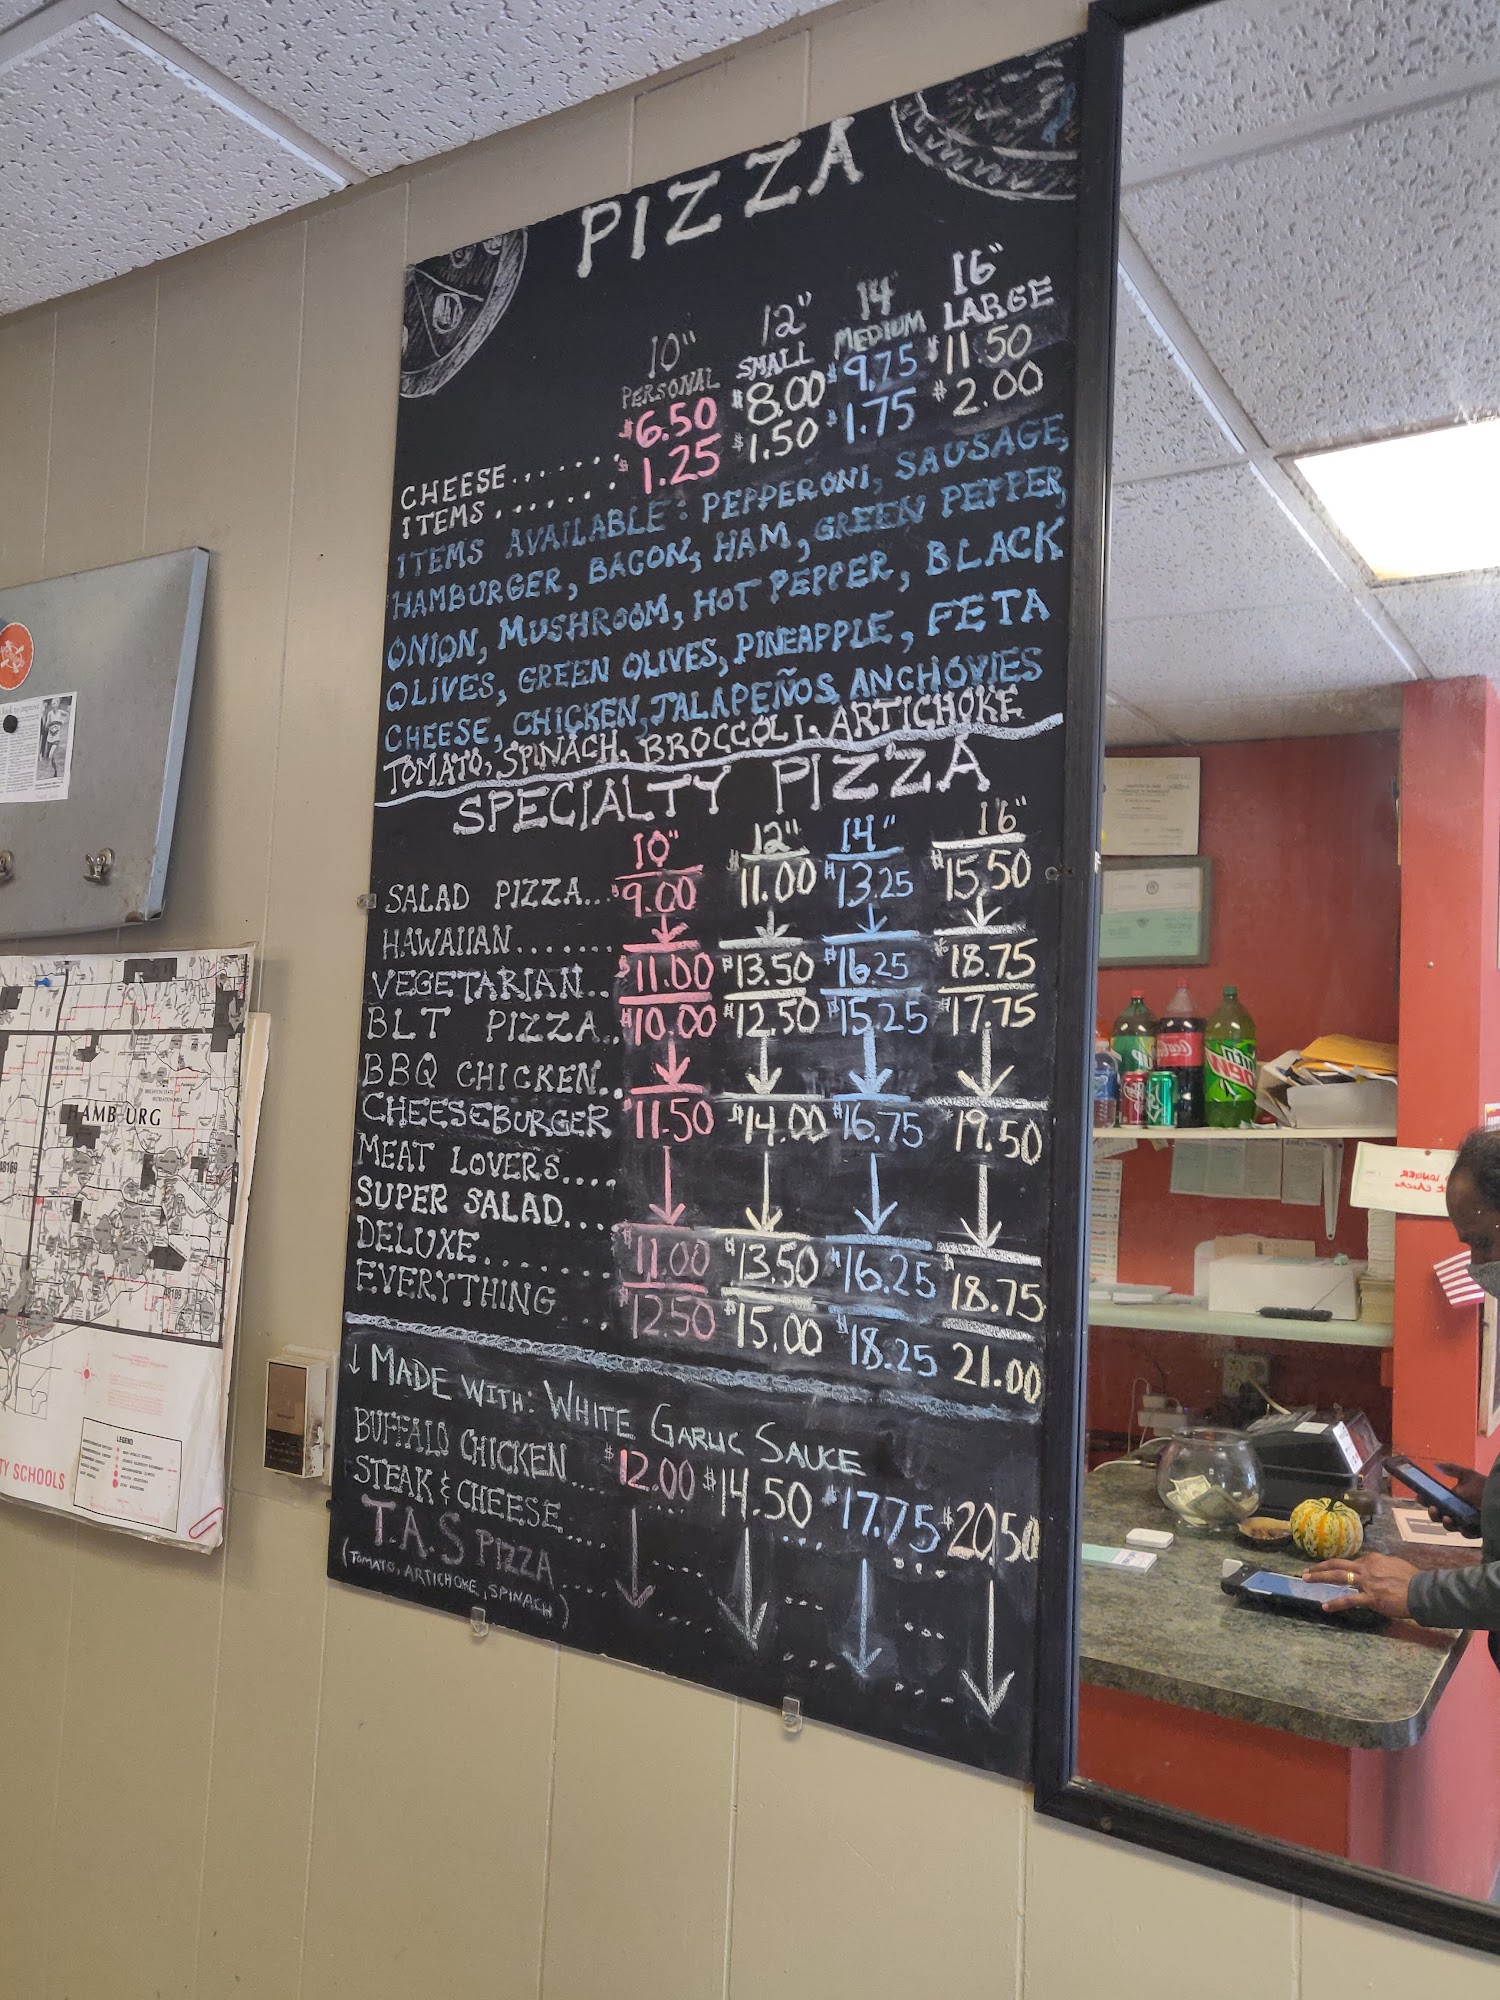 PIZZA
10" 12" 14" 16"
PERSONAL SMALL MEDIUM LARGE
CHEESE....... $6.50 $8.00 $9.75 $11.50
ITEMS....... $1.25 $1.50 $1.75 $2.00
ITEMS AVAILABLE: PEPPERONI, SAUSAGE,
HAMBURGER, BACON, HAM, GREEN PEPPER,
ONION, MUSHROOM, HOT PEPPER, BLACK
OLIVES, GREEN OLIVES, PINEAPPLE, FETA
CHEESE, CHICKEN, JALAPEÑOS, ANCHOVIES
TOMATO, SPINACH, BROCCOLI, ARTICHOKE
SPECIALTY PIZZA
10" 12" 14" 16"
SALAD PIZZA... $9.00 $11.00 $13.25 $15.50
HAWAIIAN....... ↓ ↓ ↓ ↓
VEGETARIAN.. $11.00 $13.50 $16.25 $18.75
BLT PIZZA.. $10.00 $12.50 $15.25 $17.75
BBQ CHICKEN.. ↓ ↓ ↓ ↓
CHEESEBURGER $11.50 $14.00 $16.75 $19.50
MEAT LOVERS....
SUPER SALAD... ↓ ↓ ↓ ↓
DELUXE....... $11.00 $13.50 $16.25 $18.75
EVERYTHING .. $12.50 $15.00 $18.25 21.00
↓ MADE WITH: WHITE GARLIC SAUCE
BUFFALO CHICKEN... $12.00 $14.50 $17.75 $20.50
STEAK & CHEESE....
T.A.S PIZZA.... ↓ ↓ ↓ ↓
(TOMATO, ARTICHOKE, SPINACH)
HAMBURG
48169
48189
LEGEND
TY SCHOOLS
look to improve
Coca-Cola